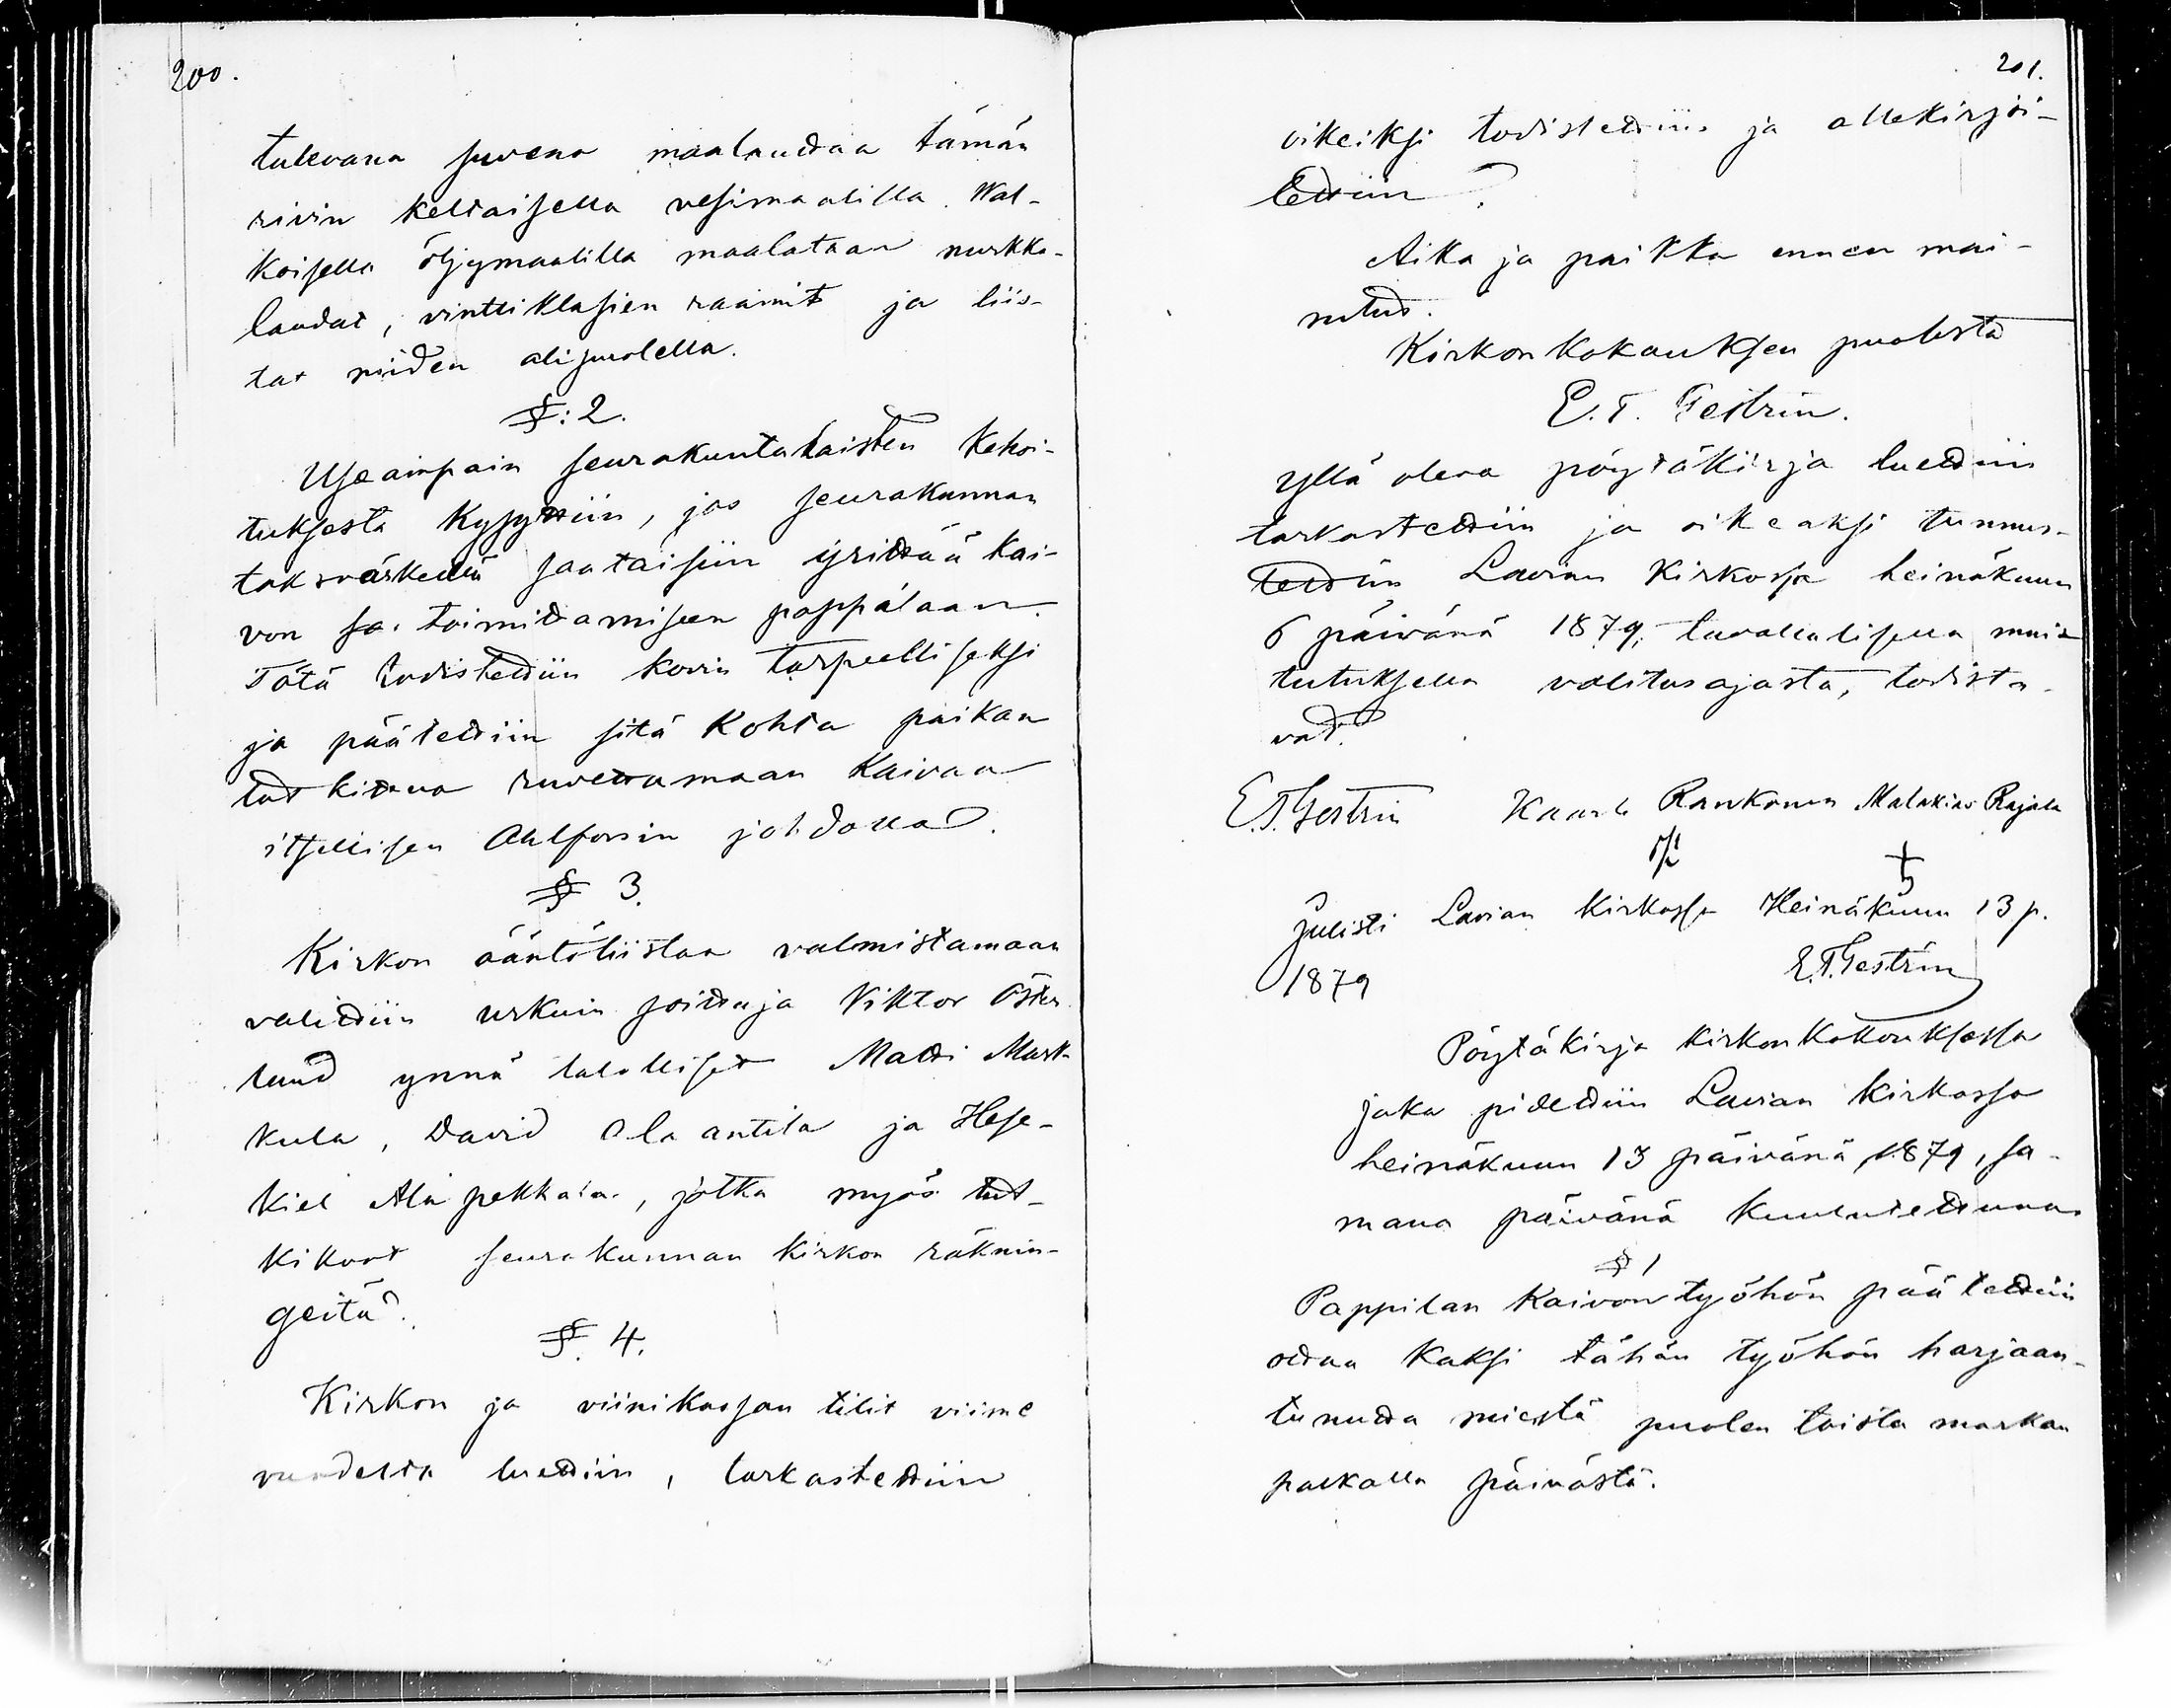 200.
tulevana suvena maalauttaa tämän
rivin keltaisella vesimaalilla. Wal-
koisella öljymaalilla maalataan nurkka-
laudat, vinttiklasien raamit ja liis-
tat niiden alipuolella.
§: 2.
Useampain seurakuntalaisten kehoi-
tuksesta kysyttiin, jos seurakunnan
taksvärkeillä saataisiin yrittää kai-
von toimittamiseen pappilaan.
Tätä todistettiin kovin tarpeelliseksi
ja päätettiin sitä kohta paikan
tutkittua ruvettamaan kaivaa
itsellisen Ahlforsin johdolla.
§ 3.
Kirkon ääntöliistaa valmistamaan
valittiin urkuin soittaja Viktor Öster
lund ynnä talolliset Matti Mark-
kula, David Ala antila ja Hese-
kiel Ala pekkala, jotka myös tut-
kikoot seurakunnan kirkon räknin-
geitä.
§. 4.
Kirkon ja viinikassan tilit viime
vuodelta luettiin, tarkastettiin
201.
oikeiksi todistettiin ja allekirjoi-
tettiin.
Aika ja paikka ennen mai-
nitut.
Kirkonkokouksen puolesta
E. T. Gestrin.
Yllä oleva pöytäkirja luettiin
tarkastettiin ja oikeaksi tunnus-
tettiin Lavian kirkossa heinäkuun
6 päivänä 1879, tavallalisella muis
tutuksella valitusajasta, todista-
vat.
E. T. Gestrin Kaarle Rankonen Malakias Rajala
Julisti Lavian kirkossa Heinäkuun 13 p.
1879 E. T. Gestrin
Pöytäkirja kirkonkokouksessa
joka pidettiin Lavian kirkossa
heinäkuun 13 päivänä 1879, sa-
mana päivänä kuulutettuna
§ 1
Pappilan kaivon työhön päätettiin
ottaa kaksi tähän työhön harjaan-
tunutta miestä puolen toista markan
palkalla päivästä.